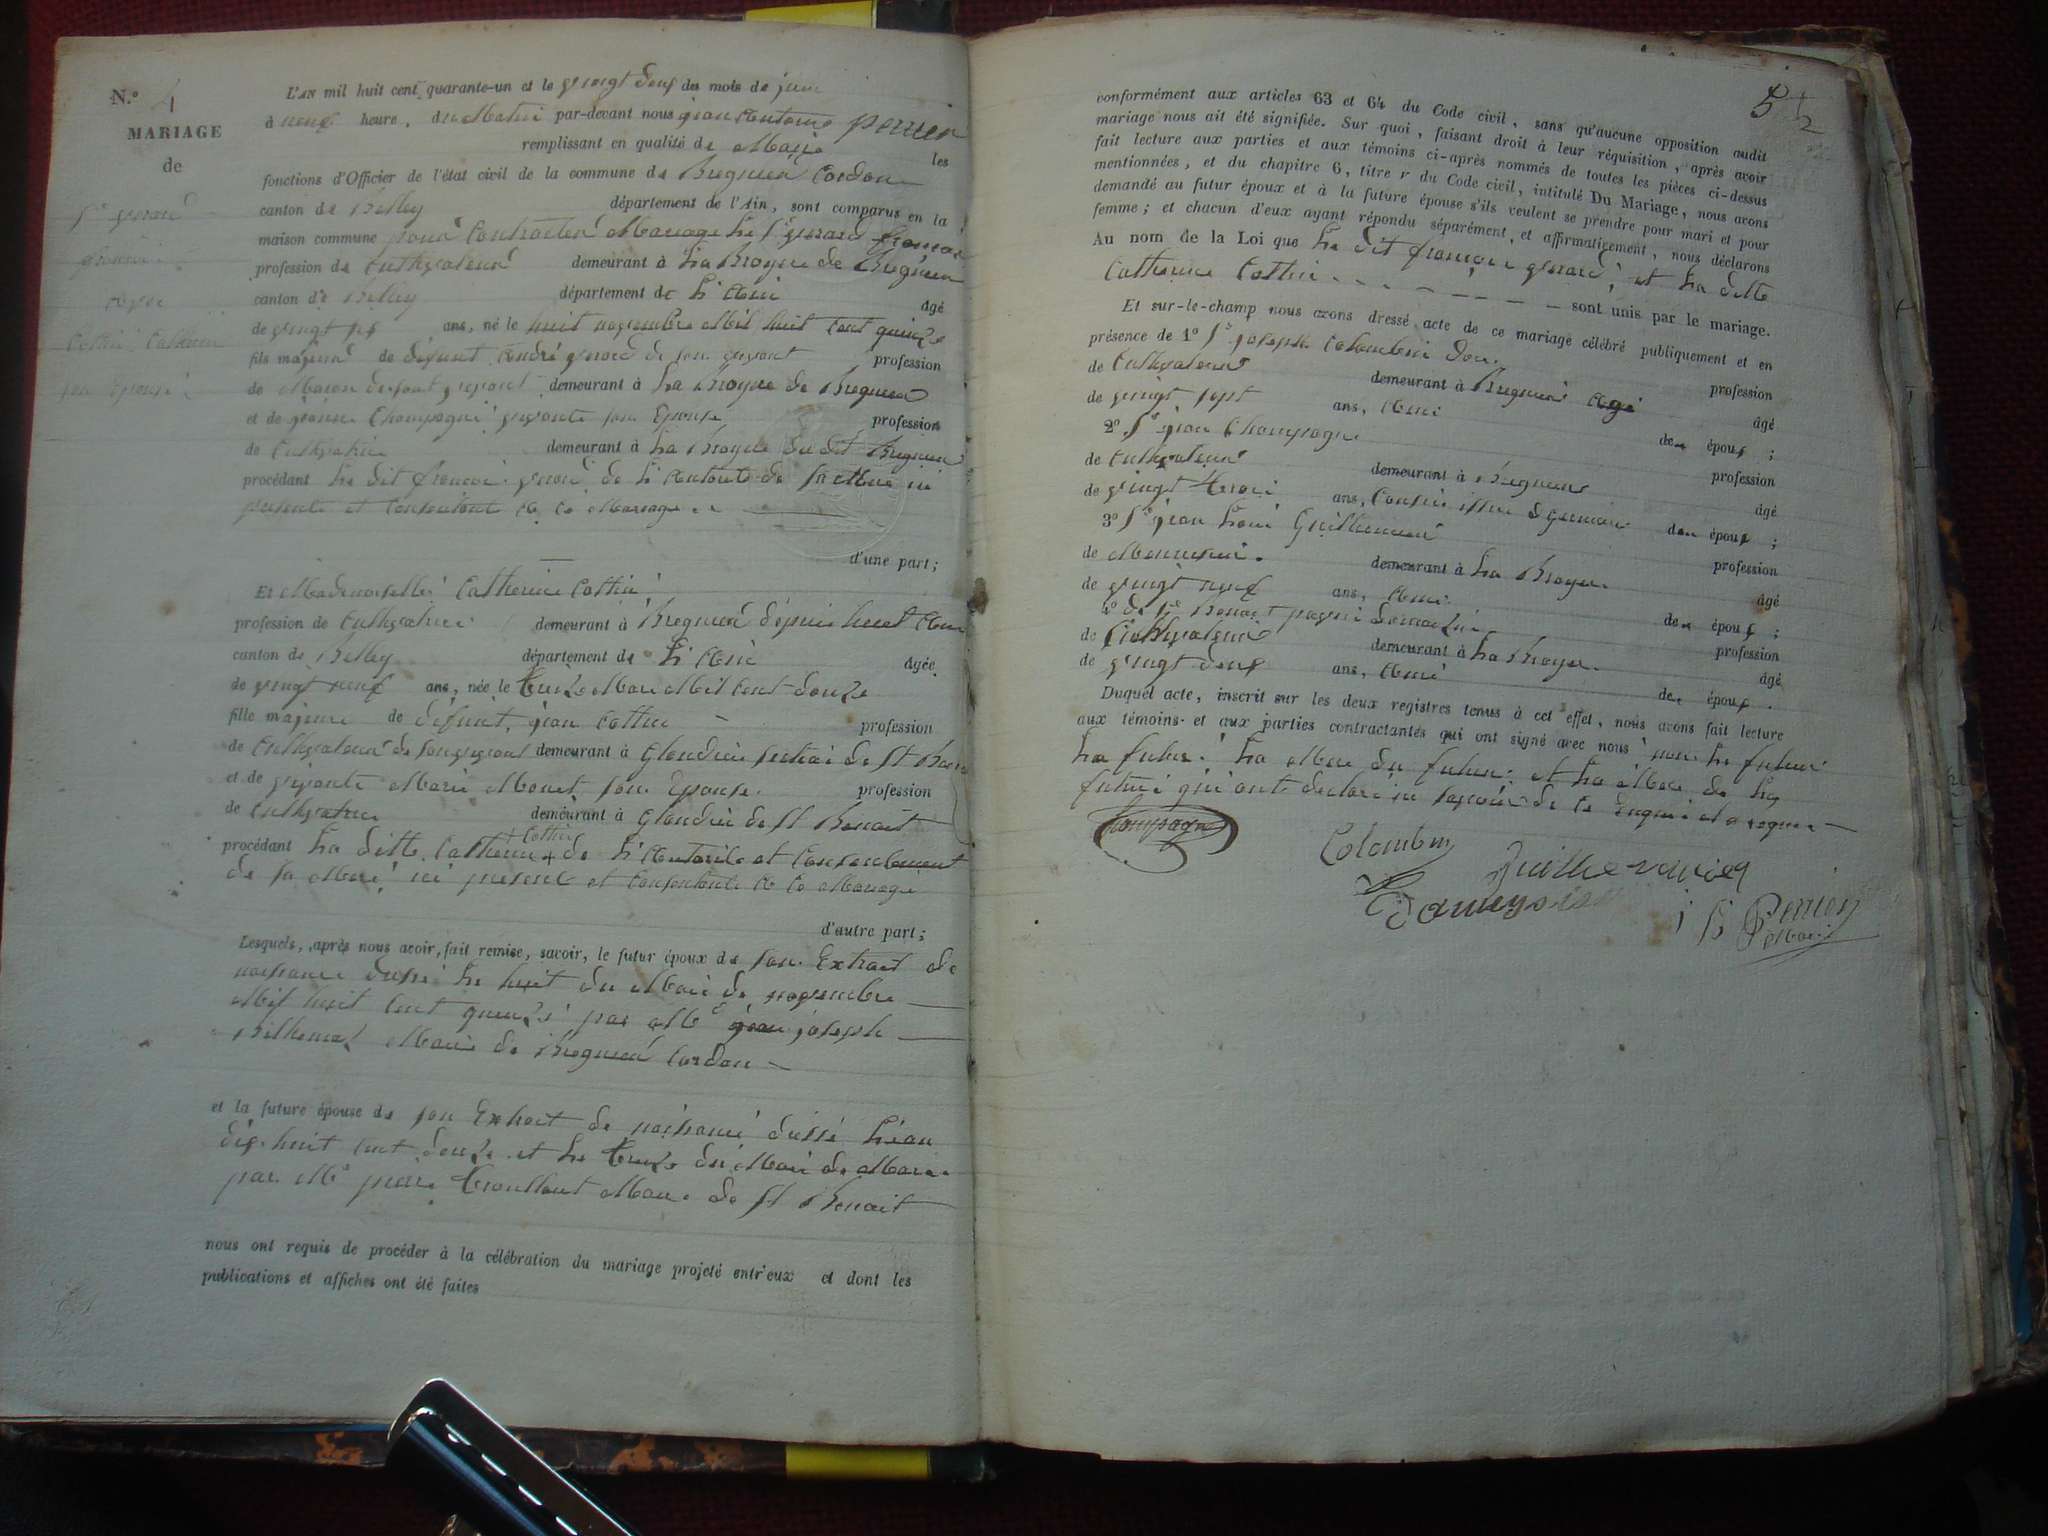 N.º 4
MARIAGE
de
Sr gerard
françois
avec
Cottin Catherine
son Epouse
L'AN mil huit cent quarante-un et le vingt deux du mois de juin
à neuf heure, du Matin par-devant nous jean Antoine perrier
remplissant en qualité de Maire les
fonctions d'Officier de l'état civil de la commune de Bregnier Cordon
canton de Belley département de l'Ain, sont comparus en la
maison commune pour Contracter Mariage Le Sr gerard françois
profession de Cultivateur demeurant à La Broye de Bregnier
canton de Belley département de L'Ain âgé
de vingt six ans, né le huit novembre Mil huit Cent quinze
fils majeur de défunt André gerard de son vivant profession
de Maçon demeurant à La Broye de Bregnier
et de jeanne Champagne vivante son Epouse profession
de Cultivatrice demeurant à La Broye du dit Bregnier
procédant Le dit françois gerard de L'Autorité de sa Mere ici
presente et Consentante a Ce Mariage
d'une part;
Et Mademoiselle Catherine Cottin
profession de Cultivatrice demeurant à Bregnier depuis huit Ans
canton de Belley département de L'Ain âgée
de vingt neuf ans, née le treize Mars Mil Cent douze
fille majeure de défunt jean Cottin profession
de Cultivateur de son vivant demeurant à Glandieu de St
et de vivante Marie Monet son Epouse profession
de Cultivatrice demeurant à Glandieu de St Benoit
procédant La ditte Catherine + Cottin + de L'Autorité et Consentement
de sa Mere ici present et Consentante a Ce Mariage
d'autre part;
Lesquels, après nous avoir fait remise, savoir, le futur époux de son Extrait de
naissance dressé Le huit du Mois de novembre
Mil huit Cent quinze par Mr jean joseph
Maire de Bregnier Cordon
et la future épouse de son Extrait de naissance dressé L'an
dix huit cent douze et Le treize du Mois de Mars
par Mr pierre Maire de St Benoit
nous ont requis de procéder à la célébration du mariage projeté entr'eux et dont les
publications et affiches ont été faites
5
1/2
conformément aux articles 63 et 64 du Code civil, sans qu'aucune opposition audit
mariage nous ait été signifiée. Sur quoi, faisant droit à leur réquisition, après avoir
fait lecture aux parties et aux témoins ci-après nommés de toutes les pièces ci-dessus
mentionnées, et du chapitre 6, titre r du Code civil, intitulé Du Mariage, nous avons
demandé au futur époux et à la future épouse s'ils veulent se prendre pour mari et pour
femme; et chacun d'eux ayant répondu séparément, et affirmativement, nous déclarons
Au nom de la Loi que Le dit françois gerard, et La ditte
Catherine Cottin sont unis par le mariage.
Et sur-le-champ nous avons dressé acte de ce mariage célébré publiquement et en
présence de 1º Sr joseph Colombin profession
de Cultivateur demeurant à Bregnier âgé
de vingt sept ans, Ami des époux ;
2º Sr jean Champagne profession
de Cultivateur demeurant à Bregnier âgé
de vingt trois ans, Cousin issu de germain des époux ;
3º Sr jean Loui Guillermier profession
de Menuisier demeurant à La Broye âgé
de vingt neuf ans, Ami des époux ;
4º profession
de Cultivateur demeurant à La Broye âgé
de vingt deux ans, Ami des époux.
Duquel acte, inscrit sur les deux registres tenus à cet effet, nous avons fait lecture
aux témoins et aux parties contractantes qui ont signé avec nous non Le futur
La future La Mere du futur et La Mere de La
future qui ont declaré ne savoir de Ce Enquis et requis
Champagne
Colombin
Guillermier
Perrier
Maire